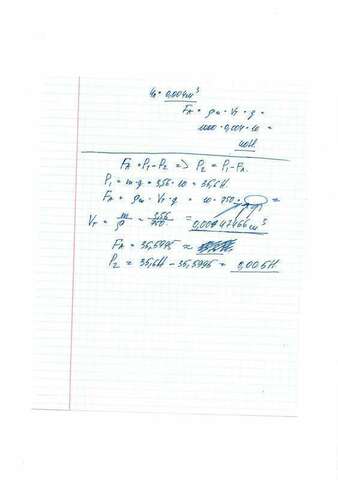 V = 0,004 м³
Fₐ = ρж · Vт · g =
1000 · 0,004 · 10 =
40Н.
Fₐ = P₁ - P₂ => P₂ = P₁ - Fₐ.
P₁ = m · g = 3,56 · 10 = 35,6Н.
Fₐ = ρж · Vт · g = 10 · 750 · =
Vт = m/ρ = 3,56/750 = м³
Fₐ = 35,5945 ≈
P₂ = 35,6Н - 35,5945 = 0,005Н